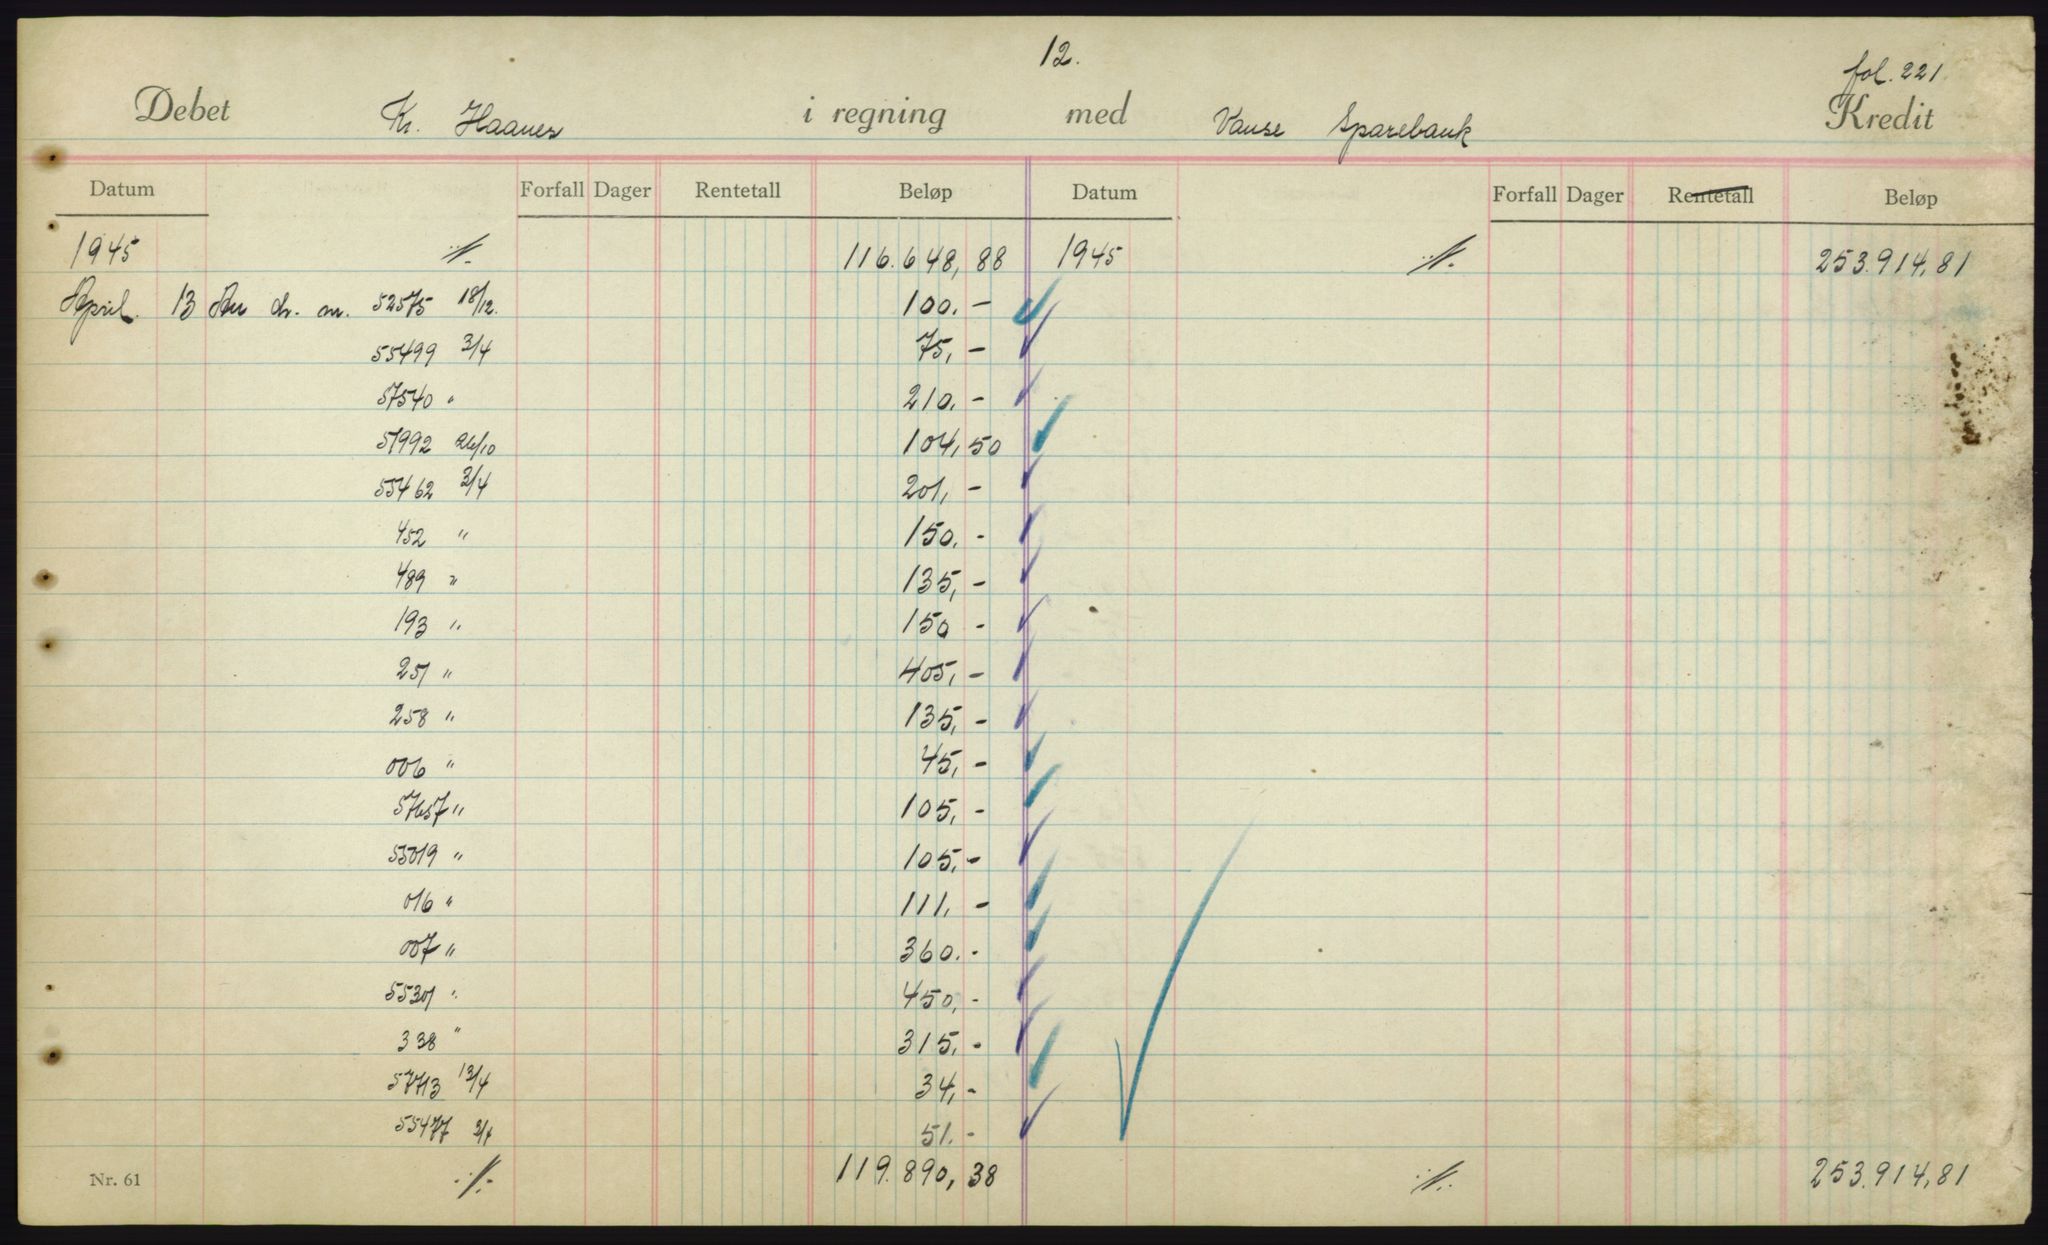 12.
fol. 221
Debet Kr. Haanes i regning med Vanse Sparebank Kredit
Datum Forfall Dager Rentetall Beløp Datum Forfall Dager Rentetall Beløp
1945 116.648,88 1945 253.914,81
April. 13 An ch. nr. 52575 18/12. 100.-
55499 3/4 75,-
57540 " 210.-
51992 26/10 104,50
55462 3/4 201,-
452 " 150.-
489 " 135,-
193 " 150 -
251 " 405,-
258 " 135,-
006 " 45,-
57657 " 105,-
55019 " 105,-
016 " 111.-
007 " 360.-
55301 " 450,-
338 " 315.-
57713 13/4 34,-
55477 3/4 51.-
Nr. 61 119.890,38 253.914,81